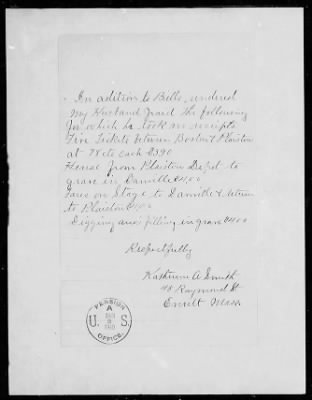 In addition to Bills rendered
My Husband paid the following
for which he took no receipts
Five Tickets between Boston & Plaistow
at 78 cts each $3.90
Hearse from Plaistow Depot to
grave in Danville $4.00
Fares on Stage to Danville & return
to Plaistow
Digging and filling in grave $4.00
Respectfully
Katherine A Smith
48 Raymond St
Everett Mass
PENSION
A
U. S.
OFFICE